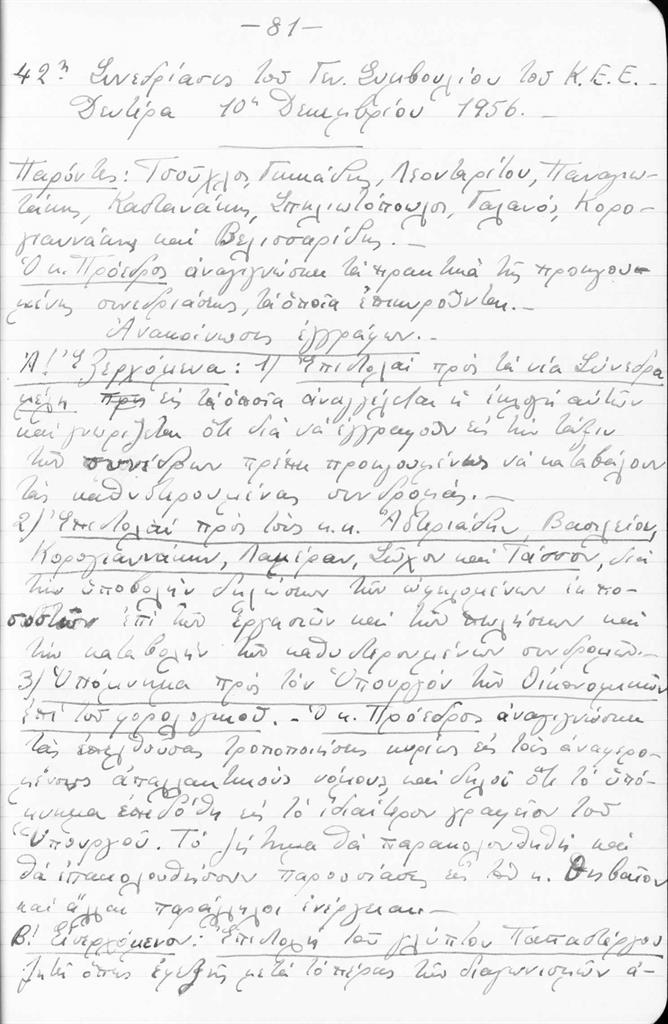 -81-
42α Συνεδρίασις τοῦ Γεν. Συμβουλίου τοῦ Κ.Ε.Ε.-
Δευτέρα 10η Δεκεμβρίου 1956.-
Παρόντες: Τσοῦχλος, Γιοκάδης, Λεονταρίτου, Παναγιω-
τάκης, Καστανάκης, Σπηλιωτόπουλος, Γαλανός, Κορο-
γιαννάκης καὶ Βελισσαρίδης.-
Ὁ κ. Πρόεδρος ἀναγιγνώσκει τὰ πρακτικὰ τῆς προηγου-
μένης συνεδριάσεως, τὰ ὁποῖα ἐπικυροῦνται.-
Ἀνακοίνωσις ἐγγράφων.-
Α! Ἐξερχόμενα: 1) Ἐπιστολαὶ πρὸς τὰ νέα Σύνεδρα
μέλη εἰς τὰ ὁποῖα ἀναγγέλεται ἡ ἐκλογὴ αὐτῶν
καὶ γνωρίζεται ὅτι διὰ νὰ ἐγγραφοῦν εἰς τὴν τάξιν
τῶν συνέδρων πρέπει προηγουμένως νὰ καταβάλουν
τὰς καθυστερουμένας συνδρομάς.-
2) Ἐπιστολαὶ πρὸς τοὺς κ.κ. Ἀστεριάδην, Βασιλείου,
Κορογιαννάκην, Λαμέραν, Σῶχον καὶ Τάσσον, διὰ
τὴν ὑποβολὴν δηλώσεων τῶν ὀφειλομένων ἐκ πο-
σοστῶν ἐπὶ τῶν ἐργασιῶν καὶ τῶν πωλήσεων καὶ
τὴν καταβολὴν τῶν καθυστερουμένων συνδρομῶν.-
3) Ὑπόμνημα πρὸς τὸν Ὑπουργόν τῶν Οἰκονομικῶν
ἐπὶ τοῦ φορολογικοῦ.- Ὁ κ. Πρόεδρος ἀναγιγνώσκει
τὰς ἐπελθούσας τροποποιήσεις κυρίως εἰς τοὺς ἀναφερο-
μένους ἀπαλλακτικοὺς νόμους, καὶ δηλοῖ ὅτι τὸ ὑπό-
μνημα ἐπεδόθη εἰς τὸ ἰδιαίτερον γραφεῖον τοῦ
Ὑπουργοῦ. Τὸ ζήτημα θὰ παρακολουθηθῇ καὶ
θὰ ἐπακολουθήσουν παρουσιάσεις εἰς τὸν κ. Θηβαῖον
καὶ ἄλλαι παράλληλοι ἐνέργειαι.-
Β! Εἰσερχόμενον: Ἐπιστολὴ τοῦ γλύπτου Παπαστέργιου
ζητεῖ ὅπως ἐφεξῆς μετὰ τὸ πέρας τῶν διαγωνισμῶν ἀ-